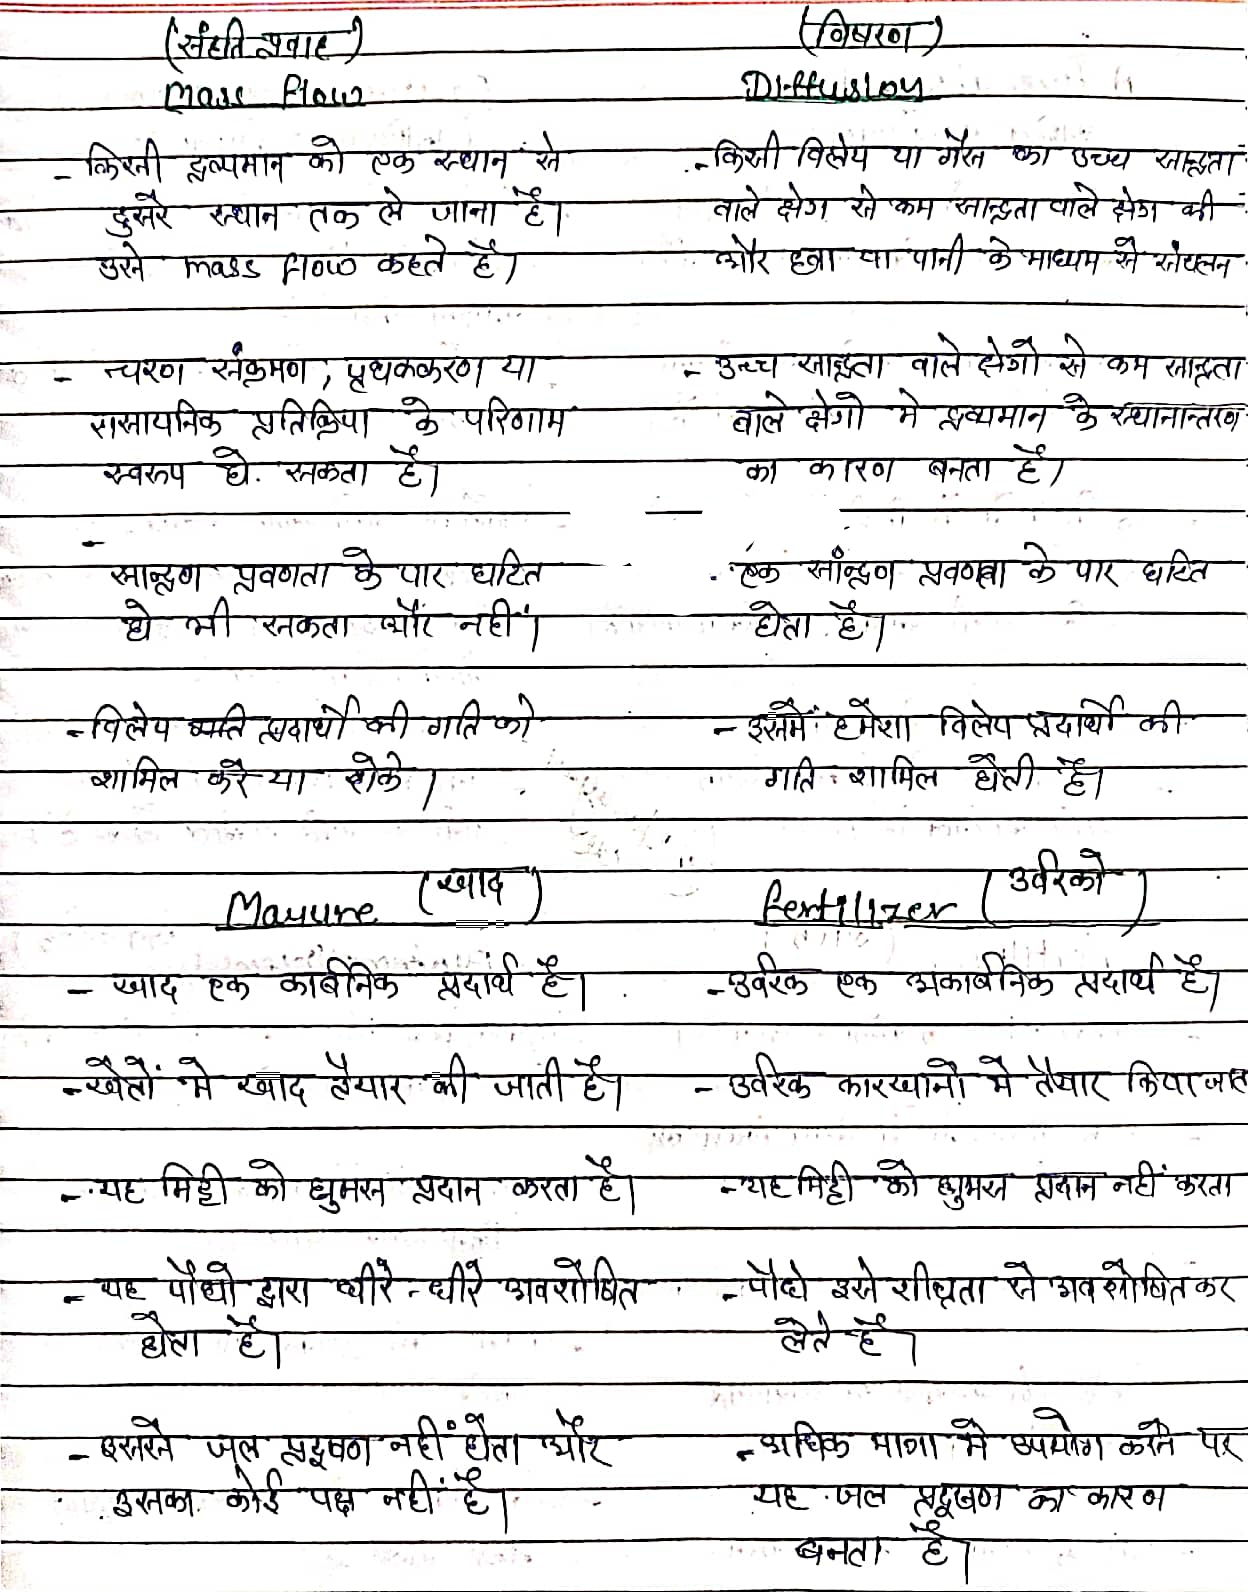 (संहति प्रवाह)
Mass Flow
- किसी द्रव्यमान को एक स्थान से
दुसरे स्थान तक ले जाना है।
इसे mass flow कहते है।
- चरण संक्रमण, पृथक्करण या
रासायनिक प्रतिक्रिया के परिणाम
स्वरूप हो सकता है।
-
सान्द्रण प्रवणता के पार घटित
हो भी सकता और नहीं।
- विलेय व्यति प्रदार्थो की गति को
शामिल करे या रोके।
(विषरण)
Diffusion
- किसी विलेय या गैस का उच्च सान्द्रता
वाले क्षेत्र से कम सान्द्रता वाले क्षेत्र की
और हवा या पानी के माध्यम से संचलन
- उच्च सान्द्रता वाले क्षेत्रो से कम सान्द्रता
वाले क्षेत्रो मे द्रव्यमान के स्थानान्तरण
का कारण बनता है।
. एक सांन्द्रण प्रवणता के पार घटित
होता है।
- इसमें हमेशा विलेय प्रदार्थो की
गति शामिल होती है।
Manure (खाद)
- खाद एक कार्बनिक प्रदार्थ है।
- खेतों मे खाद तैयार की जाती है।
- यह मिट्टी को ह्युमस प्रदान करता है।
- यह पौधो द्वारा धीरे-धीरे अवशोषित
होता है।
- इससे जल प्रदूषण नहीं होता और
इसका कोई पक्ष नहीं है।
Fertilizer (उर्वरको)
- उर्वरक एक अकार्बनिक प्रदार्थ है।
- उर्वरक कारखानों मे तैयार किया जात
- यह मिट्टी को ह्युमस प्रदान नहीं करता
- पौधे इसे शीघ्रता से अवशोषित कर
लेते है।
- अधिक मात्रा मे उपयोग करने पर
यह जल प्रदूषण का कारण
बनता है।